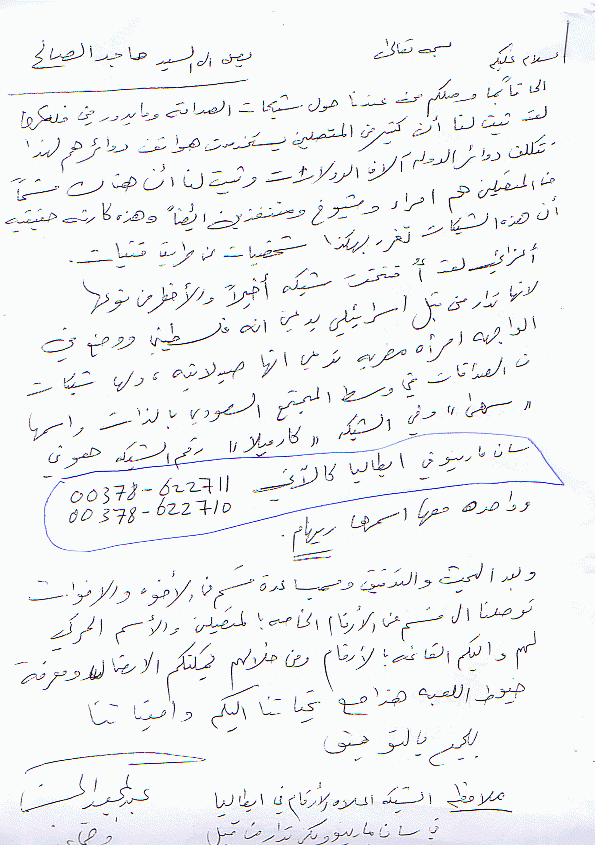 السلام عليكم بسمه تعالى يصل الى السيد ماجد الصالح
الحاقاً بما وصلكم من عندنا حول شبكات الصداقة وما يدور في
لقد ثبت لنا أن كثير من المتصلين يستخدمون هواتف دوائرهم لهذا
تتكلف دوائر الدوله آلاف الدولارات وثبت لنا أن هناك قسماً
من المتصلين هم امراء وشيوخ ومتنفذين ايضاً وهذه كارثه حقيقيه
أن هذه الشبكات تغرر بهكذا شخصيات عن طريق فتيات.
أعزائي لقد افتتحت شبكه أخيراً والأخطر من نوعها
لانها تدار من قبل اسرائيلي يدعي انه فلسطيني ووضع في
الواجهه امرأه مصريه تدعي انها صيدلانيه، ولها شبكات
من الصداقات في وسط المجتمع السعودي بالذات واسمها
"سهى" وفي الشبكه "كارميلا" رقم الشبكه
سان مارينو في ايطاليا كالآتي 00378-622711
00378-622710
وواحده معها اسمها ريهام.
وبعد البحث والتدقيق ومساعدة قسم من الأخوه والاخوات
توصلنا ال قسم من الأرقام الخاصه بالمتصلين والأسم الحركي
لهم واليكم القائمه بالأرقام ومن خلالهم يمكنكم الاتصال ومعرفة
خيوط اللعبه هذا مع تحياتنا اليكم وامنياتنا
للجميع بالتوفيق
ملاحظه الشبكه اعلاه والأرقام في ايطاليا
في سان مارينو ولكن تدار من قبل